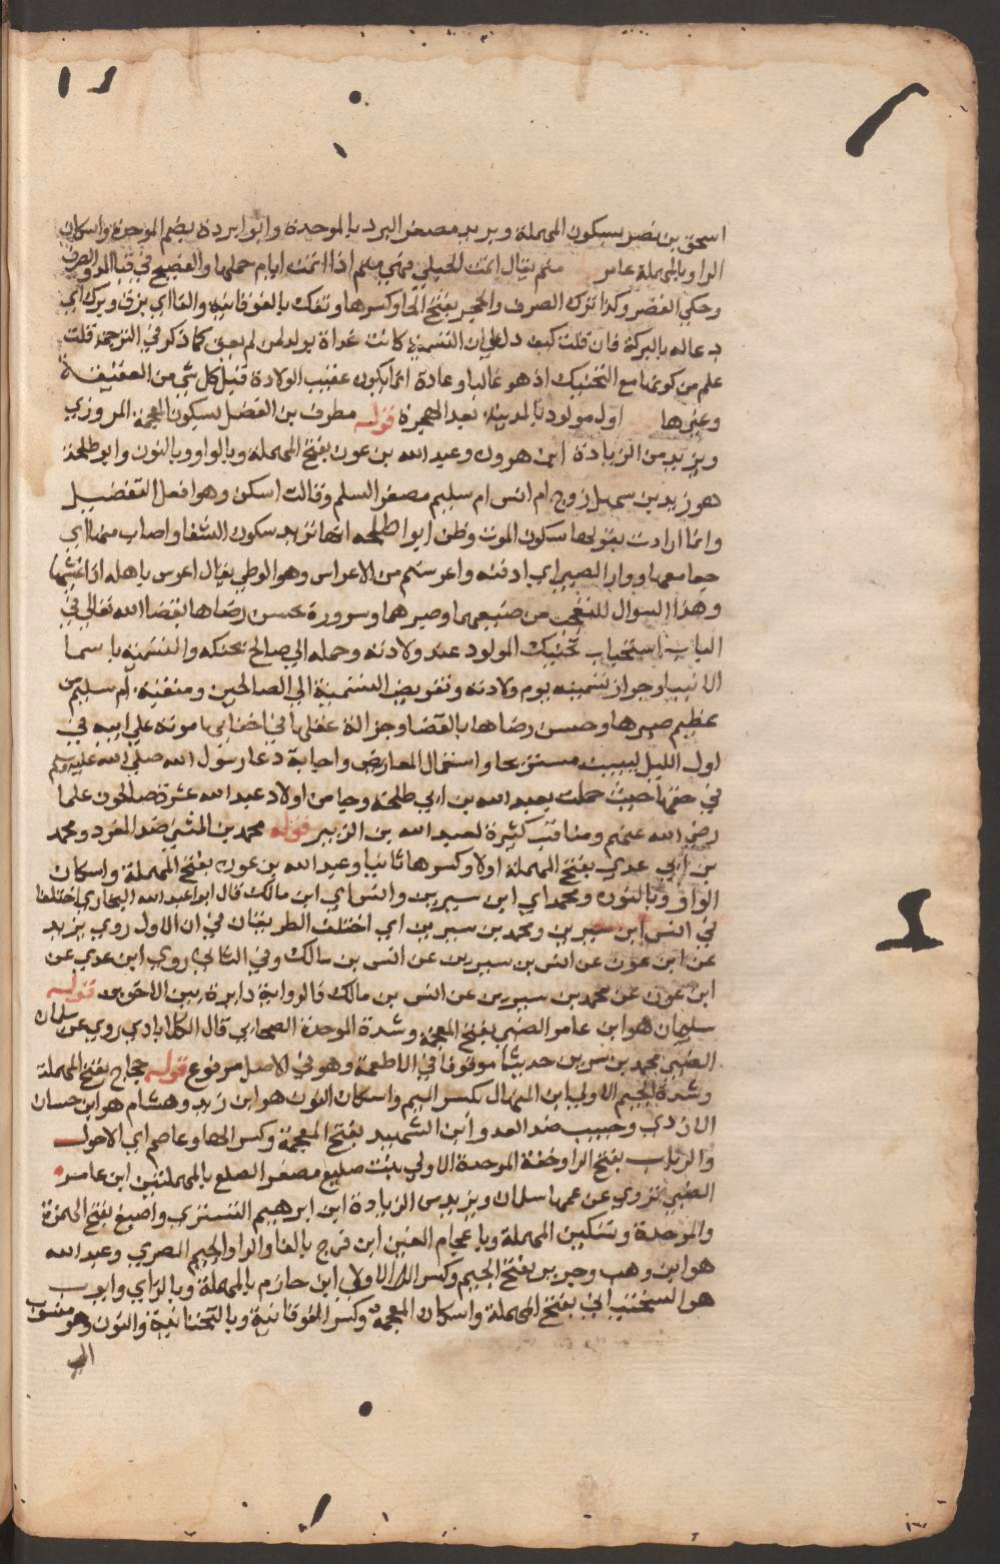 اسحق بن نصر بسكون المهملة وبريد مصغر البرد بالموحدة وابو ابردة بضم الموحدة واسكان
الرا وبالمهملة عامر متم يقال اتمت الحبلي فهي متم اذا اتمت ايام حملها والفصيح في قبا المد والصرف
وحكي القصر وكذا ترك الصرف والحجر بفتح الحا وكسرها وتفك بالفوقانيه والفا اي بزق وبرك اي
دعا له بالبركة فان قلت كيف دل علي ان التسمية كانت غداة يولد لمن لم يعق كما ذكر في الترجمة قلت
علم من كونها مع التحنيك اذ هو غالبا وعادة انما يكون عقيب الولادة قبل كل شي من العقيقة
وغيرها اول مولود بالمدينة بعد الهجرة قوله مطرف بن الفضل بسكون المعجمة المروزي
ويزيد من الزيادة ابن هرون وعبد الله بن عون بفتح المهملة وبالواو وبالنون وابو طلحة
هو زيد بن سهل زوج ام انس ام سليم مصغر السلم وقالت اسكن وهو افعل التفضيل
وانما ارادت بقولها سكون الموت وظن ابوا طلحه انها تريد سكون الشفا واصاب منها اي
جامعها ووار الصبي اي ادفنه واعرستم من الاعراس وهو الوطي يقال اعرس باهله اذا غشيها
وهذا السوال للتعجب من صنيعهما وصبرهما وسرورة بحسن رضاها بقضا الله تعالي في
الباب استحباب تحنيك المولود عند ولادته وحمله الي صالح يحنكه والتسمية باسما
الانبيا وجواز تسميته يوم ولادته وتفويض التسمية الي الصالحين ومنقبة ام سليم من
عظيم صبرها وحسن رضاها بالقضا وجزالة عقلها في اخفايها موته علي ابيه في
اول الليل ليبيت مستريحا واستعمال المعاريض واجابة دعا رسول الله صلي الله عليه وسلم
في حقها حيث حملت بعبد الله بن ابي طلحة وجا من اولاد عبد الله عشرة صالحون علما
رضي الله عنهم ومناقب كثيرة لعبد الله بن الزبير قوله محمد بن المثني ضد المفرد ومحمد
بن ابي عدي بفتح المهملة اولا وكسرها ثانيا وعبد الله بن عون بفتح المهملة واسكان
الواو وبالنون ومحمد اي ابن سيرين وانس اي ابن مالك قال ابو اعبد الله البخاري اختلفا
في انس ابن سيرين ومحمد بن سيرين اي اختلف الطريقان في ان الاول روي يزيد
عن ابن عون عن انس بن سيرين عن انس بن مالك وفي الثاني روي ابن عدي عن
ابن عون عن محمد بن سيرين عن انس بن مالك فالرواية دايرة بين الاخوين قوله
سليمان هو ابن عامر الضبي بفتح المعجمة وشدة الموحدة الصحابي قال الكلابادي روي عن سلمان
الضبي محمد بن سيرين حديثا موقوفا في الاطعمة وهو في الاصل مرفوع قوله حجاج بفتح المهملة
وشدة الجيم الاولي ابن المنهال بكسر الميم واسكان النون هو ابن زيد وهشام هو ابن حسان
الازدي وحبيب ضد العدو ابن الشهيد بفتح المعجمة وكسر الها وعاصم اي الاحول
والرباب بفتح الرا وخفة الموحدة الاولي بنت صليع مصغر الصلع بالمهملتين ابن عامر
الضبي تروي عن عمها سلمان ويزيد من الزيادة ابن ابرهيم التستري واصبغ بفتح الهمزة
والموحدة وتسكين المهملة وباعجام الغين ابن فرج بالفا والرا والجيم المصري وعبد الله
هو ابن وهب وجرير بفتح الجيم وكسر الرا الاولي ابن حازم بالمهملة وبالزاي وايوب
هو السختياني بفتح المهملة واسكان المعجمة وكسر الفوقانية وبالتحتانية والنون وهو منسوب
الي